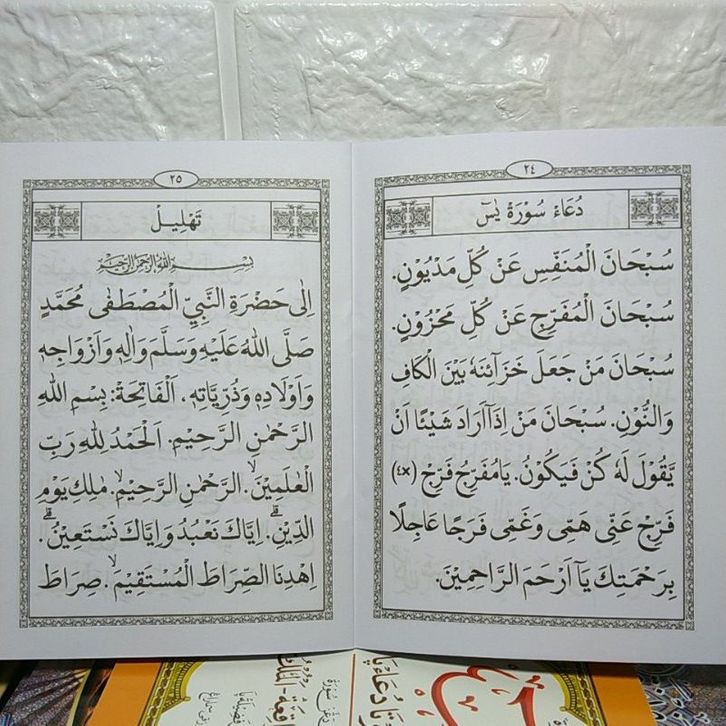 ٢٤
دُعَاءُ سُوْرَةْ يٰسٓ
سُبْحَانَ الْمُنَفِّسِ عَنْ كُلِّ مَدْيُوْنٍ.
سُبْحَانَ الْمُفَرِّجِ عَنْ كُلِّ مَحْزُوْنٍ.
سُبْحَانَ مَنْ جَعَلَ خَزَآئِنَهٗ بَيْنَ الْكَافِ
وَالنُّوْنِ. سُبْحَانَ مَنْ اِذَآ اَرَادَ شَيْئًا اَنْ
يَّقُوْلَ لَهٗ كُنْ فَيَكُوْنُ. يَا مُفَرِّجُ فَرِّجْ (٤×)
فَرِّجْ عَنِّى هَمِّى وَغَمِّى فَرَجًا عَاجِلًا
بِرَحْمَتِكَ يَآ اَرْحَمَ الرَّاحِمِيْنَ.
٢٥
تَهْلِيْلْ
بِسْمِ اللهِ الرَّحْمٰنِ الرَّحِيْمِ
اِلٰى حَضْرَةِ النَّبِيِّ الْمُصْطَفٰى مُحَمَّدٍ
صَلَّى اللهُ عَلَيْهِ وَسَلَّمَ وَاٰلِهٖ وَاَزْوَاجِهٖ
وَاَوْلَادِهٖ وَذُرِّيَّاتِهٖ، اَلْفَاتِحَةْ: بِسْمِ اللهِ
الرَّحْمٰنِ الرَّحِيْمِ. اَلْحَمْدُ لِلّٰهِ رَبِّ
الْعٰلَمِيْنَۙ. الرَّحْمٰنِ الرَّحِيْمِۙ. مٰلِكِ يَوْمِ
الدِّيْنِۗ. اِيَّاكَ نَعْبُدُ وَاِيَّاكَ نَسْتَعِيْنُۗ.
اِهْدِنَا الصِّرَاطَ الْمُسْتَقِيْمَۙ. صِرَاطَ